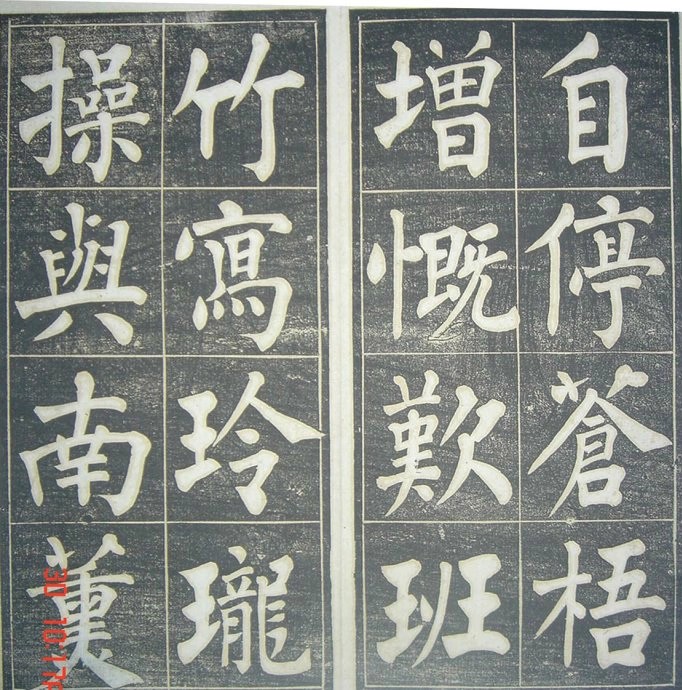 自停蒼梧
增慨歎班
竹寫玲瓏
操與南薰
30 10:17